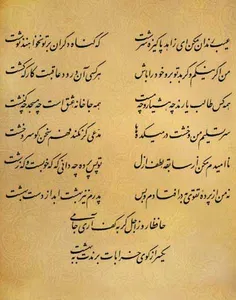 عیب رندان مکن ای زاهد پاکیزه سرشت که گناه دگران بر تو نخواهند نوشت
من اگر نیکم و گر بد تو برو خود را باش هر کسی آن درود عاقبت کار که کشت
همه کس طالب یارند چه هشیار و چه مست همه جا خانه عشق است چه مسجد چه کنشت
سر تسلیم من و خشت در میکده‌ها مدعی گر نکند فهم سخن گو سر و خشت
ناامیدم مکن از سابقه لطف ازل تو پس پرده چه دانی که که خوب است و که زشت
نه من از پرده تقوی به در افتادم و بس پدرم نیز بهشت ابد از دست بهشت
حافظا روز اجل گر به کف آری جامی
یکسر از کوی خرابات برندت به بهشت